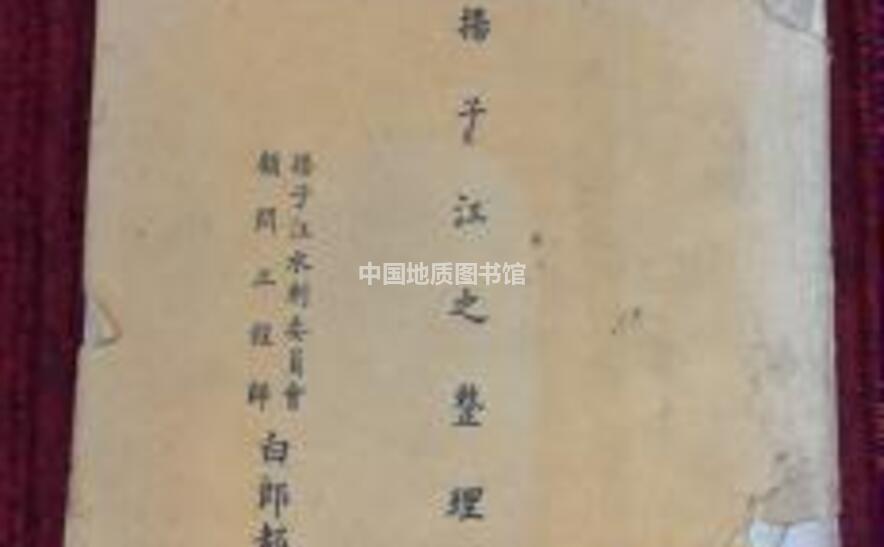 揚子江之整理
揚子江水利委員會
顧問工程師
白郎
中国地质图书馆